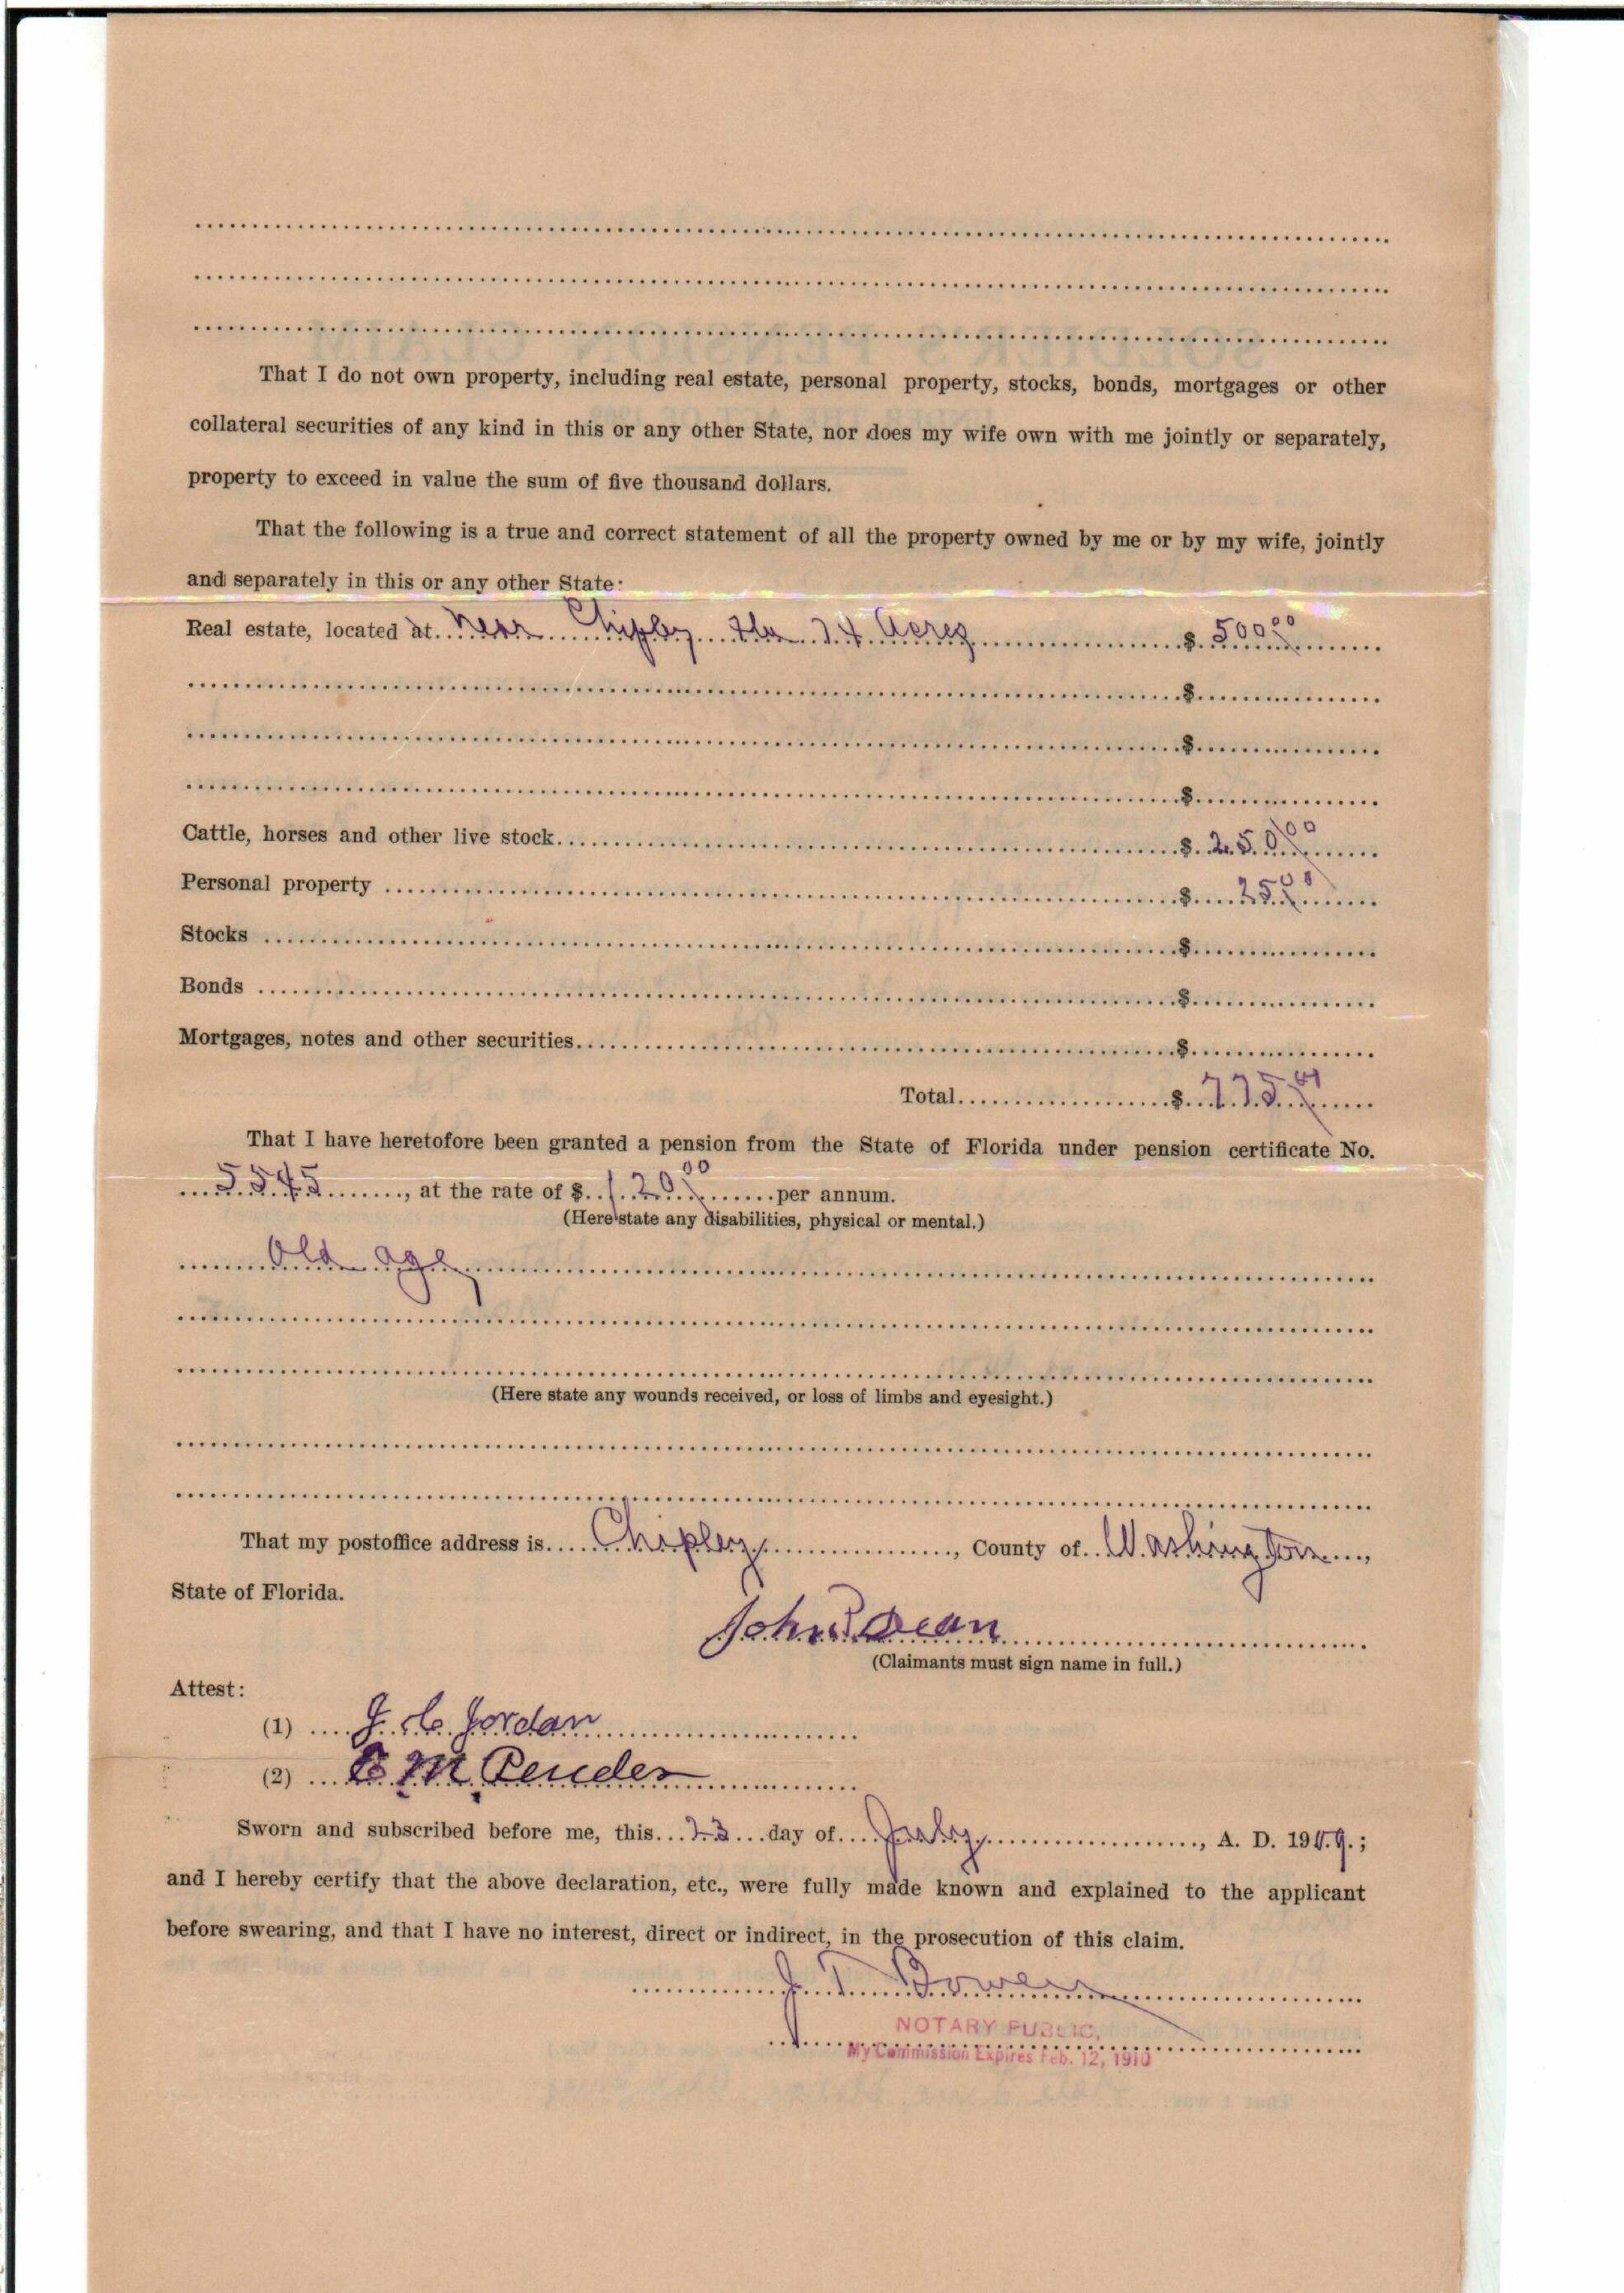 That I do not own property, including real estate, personal property, stocks, bonds, mortgages or other
collateral securities of any kind in this or any other State, nor does my wife own with me jointly or separately,
property to exceed in value the sum of five thousand dollars.
That the following is a true and correct statement of all the property owned by me or by my wife, jointly
and separately in this or any other State:
Real estate, located at Near Chipley Fla 74 Acres $ 500 00
$
$
$
Cattle, horses and other live stock $ 250 00
Personal property $ 25 00
Stocks $
Bonds $
Mortgages, notes and other securities $
Total $ 775
That I have heretofore been granted a pension from the State of Florida under pension certificate No.
5545, at the rate of $ 120 00 per annum.
(Here state any disabilities, physical or mental.)
Old age
(Here state any wounds received, or loss of limbs and eyesight.)
That my postoffice address is Chipley, County of Washington,
State of Florida.
John Dean
(Claimants must sign name in full.)
Attest:
(1) J. C. Jordan
(2) M Pender
Sworn and subscribed before me, this 23 day of July, A. D. 1909.;
and I hereby certify that the above declaration, etc., were fully made known and explained to the applicant
before swearing, and that I have no interest, direct or indirect, in the prosecution of this claim.
J T Bowen
NOTARY PUBLIC,
My Commission Expires Feb. 12, 1910